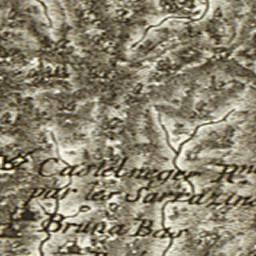 Castelneger R
par les Sarrazin
Bruna Bas